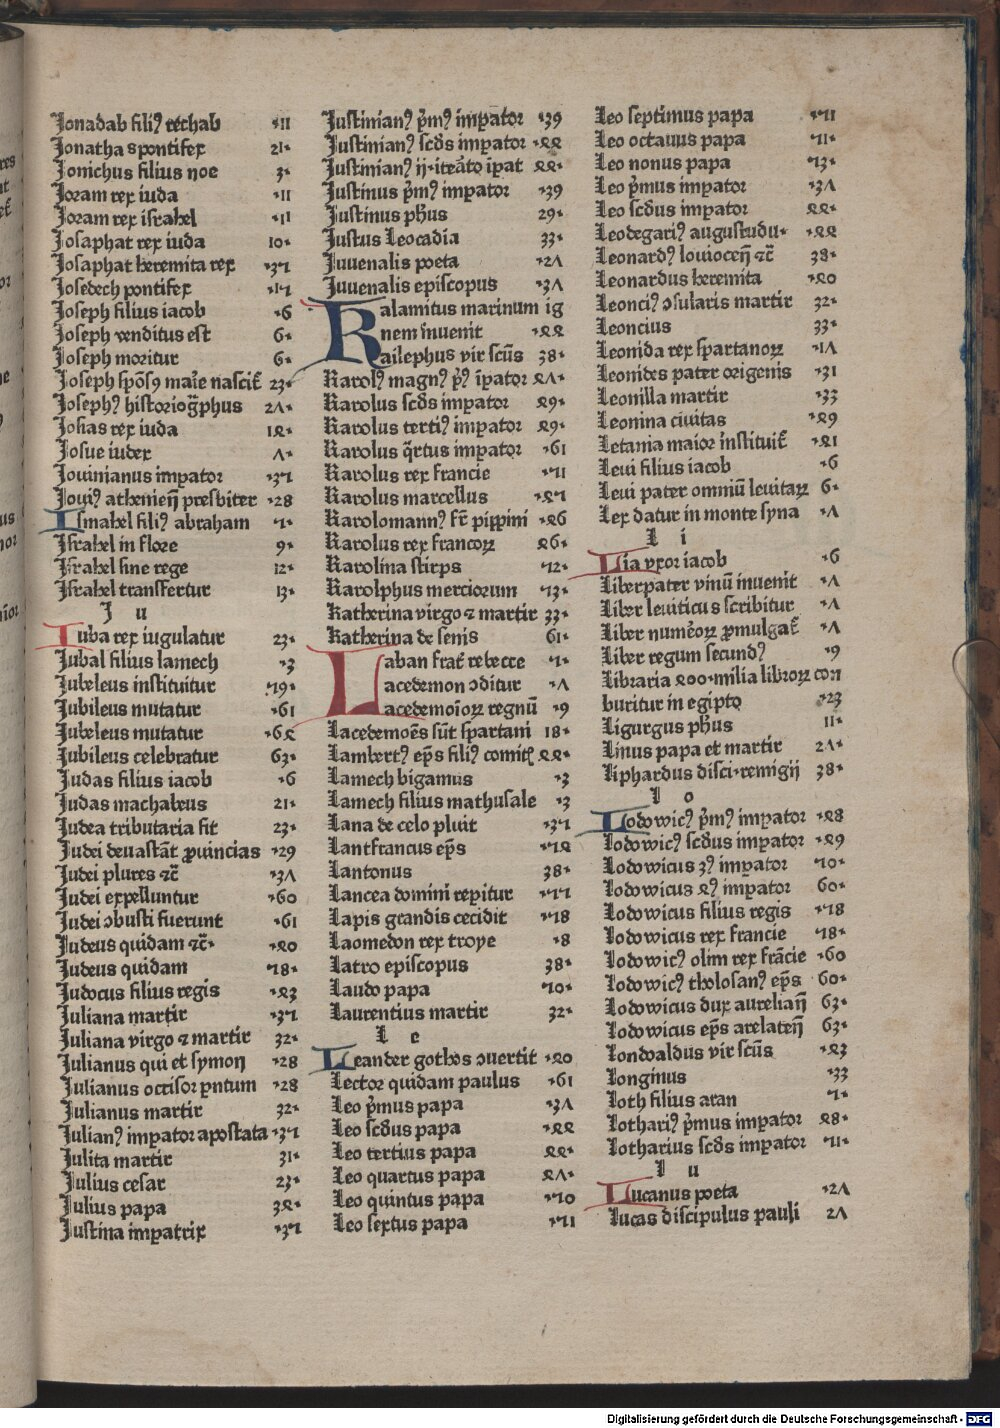 Jonadab filiꝰ rechab ·11
Jonathas pontifex 21·
Jonichus filius noe 3·
Joram rex iuda ·11
Joram rex israhel ·11
Josaphat rex iuda 10·
Josaphat heremita rex ·37
Josedech pontifex ·17
Joseph filius iacob ·6
Joseph venditus est 6·
Joseph moritur 6·
Joseph spōsꝰ marie nascit᷑ 23·
Josephꝰ historiog̃phus 2Λ·
Josias rex iuda 1ꝝ·
Josue iudex Λ·
Jouinianus imꝑator ·37
Jouiꝰ athenieñ presbiter ·28
Ismahel filiꝰ abraham ·7·
Israhel in flore 9·
Israhel sine rege 12·
Israhel transfertur 13·
J u
Iuba rex iugulatur 23·
Jubal filius lamech ·3
Jubeleus instituitur ·19·
Jubileus mutatur ·61
Jubeleus mutatur ·6ꝝ
Jubileus celebratur 63·
Judas filius iacob ·6
Judas machabeus 21·
Judea tributaria fit 23·
Judei deuastāt ꝓuincias ·29
Judei plures ⁊c̄ ·3Λ
Judei expelluntur ·60
Judei ↄbusti fuerunt ·61
Judeus quidam ⁊c̄· ·ꝝ0
Judeus quidam ·78·
Judocus filius regis ·ꝝ3
Juliana martir ·37
Juliana virgo ⁊ martir 32·
Julianus qui et symoñ ·28
Julianus occisor ꝑntum ·28
Julianus martir 32·
Julianꝰ imꝑator apostata ·37
Julita martir 31·
Julius cesar 23·
Julius papa 3ꝝ·
Justina imꝑatrix ·37
Justinianꝰ p̄mꝰ imꝑator ·39
Justinianꝰ scd̄s imꝑator ·ꝝꝝ
Justinianꝰ ij·iterāto īꝑat ꝝꝝ·
Justinus p̄mꝰ imꝑator ·39
Justinus ph̄us 29·
Justus Leocadia 33·
Juuenalis poeta ·2Λ
Juuenalis episcopus ·3Λ
Kalamitus marinum ig
nem inuenit ·ꝝꝝ
Kailephus vir scūs 38·
Karolꝰ magnꝰ p̄ꝰ īꝑator ꝝΛ·
Karolus scd̄s imꝑator ·ꝝ9·
Karolus tertiꝰ imꝑator ꝝ9·
Karolus q̄rtus imꝑator ·61
Karolus rex francie ·71
Karolus marcellus ·ꝝ7
Karolomannꝰ fr̄ pippini ·ꝝ6
Karolus rex francoꝝ ꝝ6·
Karolina stirps ·72·
Karolphus merciorum ·73·
Katherina virgo ⁊ martir 33·
Katherina de senis 61·
Laban frat᷑ rebecce ·7·
Lacedemon ↄditur ·Λ
Lacedemoīoꝝ regnū ·9
Lacedemoēs sūt spartani 18·
Lambertꝰ ep̄s filiꝰ comit᷑ ꝝꝝ·
Lamech bigamus ·3
Lamech filius mathusale ·3
Lana de celo pluit ·37
Lantfrancus ep̄s ·7ꝝ
Lantonus 38·
Lancea domini reꝑitur ·77
Lapis grandis cecidit ·78
Laomedon rex troye ·8
Latro episcopus 38·
Laudo papa 70·
Laurentius martir 32·
L e
Leander gothos ↄuertit ·ꝝ0
Lector quidam paulus ·61
Leo p̄mus papa ·3Λ
Leo scd̄us papa ·ꝝꝝ
Leo tertius papa ꝝꝝ·
Leo quartus papa ꝝΛ·
Leo quintus papa ·70
Leo sextus papa ·71
Leo septimus papa ·71
Leo octauus papa ·71·
Leo nonus papa ·73·
Leo p̄mus imꝑator ·3Λ
Leo scd̄us imꝑator ꝝꝝ·
Leodegariꝰ augustudu· ·ꝝꝝ
Leonardꝰ louioceñ ⁊c̄ 38·
Leonardus heremita ·ꝝ0
Leonciꝰ ↄsularis martir 32·
Leoncius 33·
Leonida rex spartanoꝝ ·1Λ
Leonides pater origenis ·31
Leonilla martir ·33
Leonina ciuitas ·ꝝ9
Letania maior instituit᷑ ·ꝝ1
Leui filius iacob ·6
Leui pater omniū leuitaꝝ 6·
Lex datur in monte syna ·Λ
L i
Lia vxor iacob ·6
Liberpater vinū inuenit ·Λ
Liber leuiticus scribitur ·Λ
Liber numeroꝝ ꝓmulgat᷑ ·Λ
Liber regum secundꝰ ·9
Libraria ꝝ00·milia libroꝝ com
buritur in egipto ·23
Ligurgus ph̄us 11·
Linus papa et martir 2Λ·
Liphardus disci·remigij 38·
L o
Lodowicꝰ p̄mꝰ imꝑator ·ꝝ8
Lodowicꝰ scd̄us imꝑator ·ꝝ9
Lodowicus 3ꝰ imꝑator ·70·
Lodowicus ꝝꝰ imꝑator 60·
Lodowicus filius regis ·78
Lodowicus rex francie ·78·
Lodowicꝰ olim rex frācie ·60
Lodowicꝰ tholosanꝰ ep̄s 60·
Lodowicus dux aureliañ 63·
Lodowicus ep̄s arelateñ 63·
Londoaldus vir scūs ·ꝝ3
Longinus ·33
Loth filius aran ·7·
Lothariꝰ p̄mus imꝑator ꝝ8·
Lotharius scd̄s imꝑator ·71·
L u
Lucanus poeta ·2Λ
Lucas discipulus pauli 2Λ
Digitalisierung gefördert durch die Deutsche Forschungsgemeinschaft - DFG